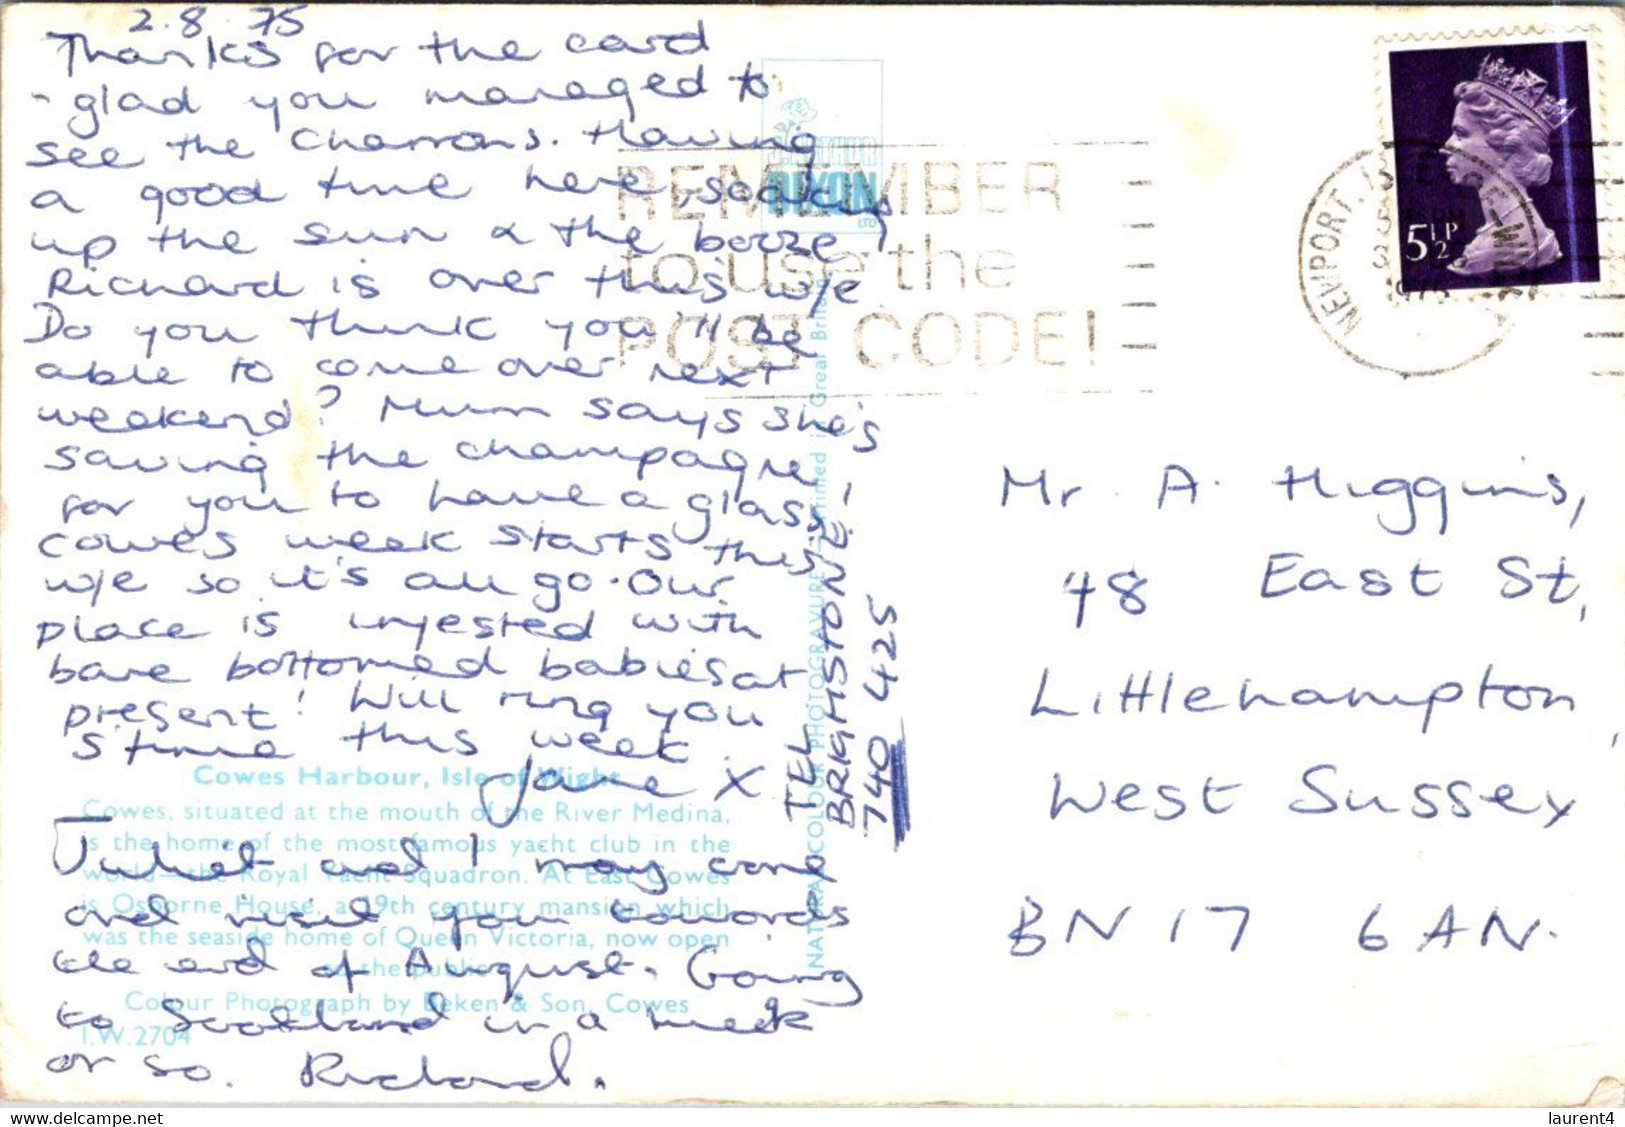 2.8.75
Thanks for the card
- glad you managed to
see the Charrons. Having
a good time here, soaking
up the sun & the booze!
Richard is over this w/e
Do you think you'll be
able to come over next
weekend? Mum says she's
saving the champagne
for you to have a glass!
Cowes week starts this
w/e so it's all go. Our
place is infested with
bare bottomed babies at
present! Will ring you
s'time this week.
Jane X
Juliet and I may come
and visit you towards
the end of August. Going
to Scotland in a week
or so. Richard.
TEL
BRIGHSTONE
740 425
Cowes Harbour, Isle of Wight
Cowes, situated at the mouth of the River Medina,
is the home of the most famous yacht club in the
world—the Royal Yacht Squadron. At East Cowes
is Osborne House, a 19th century mansion which
was the seaside home of Queen Victoria, now open
to the public.
Colour Photograph by Beken & Son, Cowes
I.W.2704
DIXON
NATURAL COLOUR PHOTOGRAVURE—Printed in Great Britain
REMEMBER
to use the
POST CODE!
NEWPORT, ISLE OF WIGHT
1975
5½P
Mr. A. Higgins,
48 East St,
Littlehampton,
West Sussex
BN17 6AN.
delcampe.net
laurent4